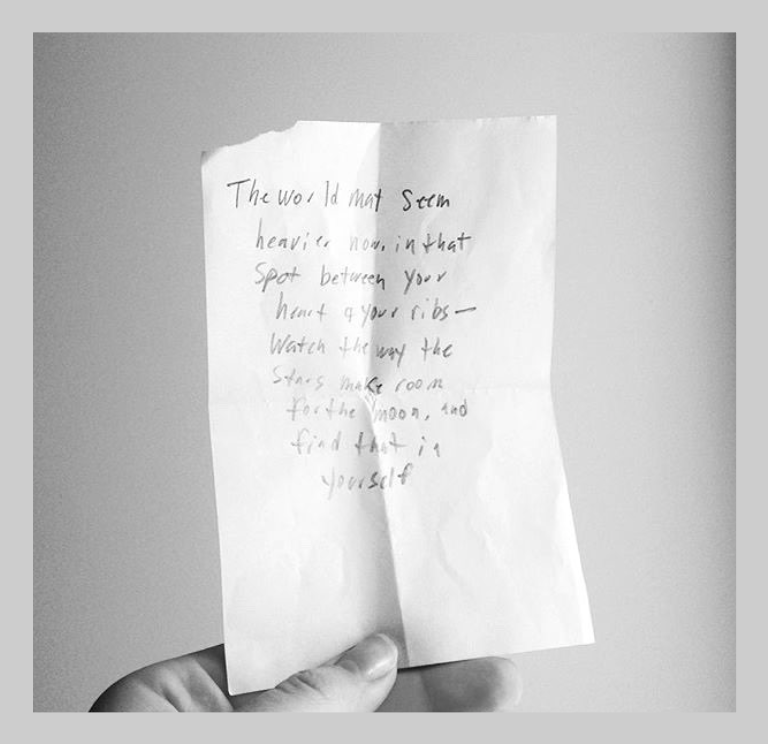 The world mat seem
heavier now, in that
spot between your
heart & your ribs—
Watch the way the
Stars make room
for the moon, and
find that in
yourself